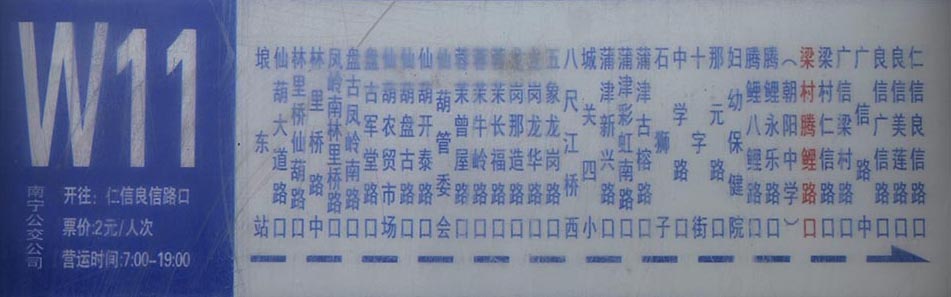 W11
南宁公交公司
开往：仁信良信路口
票价:2元/人次
营运时间:7:00-19:00
埌东站
仙葫大道路口
林里桥仙葫路口
林里桥路中
凤岭南林里桥路口
盘古凤岭南路口
盘古军堂路口
仙葫农贸市场
仙葫盘古路口
仙葫开泰路口
仙葫管委会
蓉茉曾屋路口
蓉茉牛岭路口
蓉茉长福路口
龙岗那造路口
龙岗龙华路口
五象龙岗路口
八尺江桥西
城关四小
蒲津新兴路口
蒲津彩虹南路口
蒲津古榕路口
石狮子
中学路口
十字街
那元路口
妇幼保健院
腾鲤八鲤路口
腾鲤永乐路口
(朝阳中学)
梁村腾鲤路口
梁村仁信路口
广信梁村路口
广信路中
良信广信路口
良信美莲路口
仁信良信路口